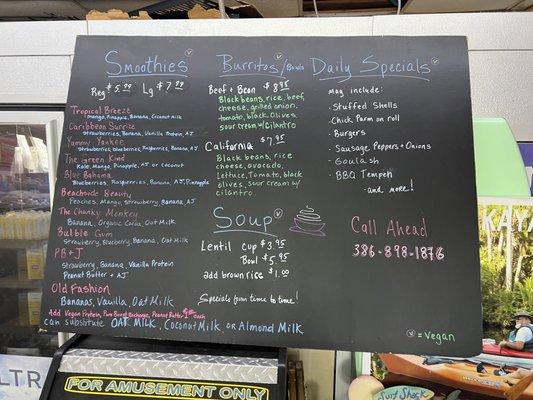 Smoothies V
Reg $5.99 Lg $7.99
Tropical Breeze
mango, Pineapple, Banana, Coconut Milk
Caribbean Sunrize
Strawberries, Banana, Vanilla Protein, AJ
Yummy Yankee
Strawberries, blueberries, Raspberries, Banana, AJ
The Green Kind
Kale, Mango, Pineapple, AJ or coconut
Blue Bahama
Blueberries, Raspberries, Banana, AJ, Pineapple
Beachside Beauty
Peaches, Mango, Strawberry, Banana, AJ
The Chunky Monkey
Banana, Organic Cacao, Oat Milk
Bubble Gum
Strawberry, Blueberry, Banana, Oat Milk
PB+J
Strawberry, Banana, Vanilla Protein
Peanut Butter + AJ
Old Fashion
Bananas, Vanilla, Oat Milk
Add Vegan Protein, Pure Boost Recharge, Peanut Butter each
can substitute OAT MILK, Coconut Milk or Almond Milk
Burritos/Bowls V
Beef + Bean $8.95
Black beans, rice, beef,
cheese, grilled onion,
tomato, black Olives,
sour cream w/Cilantro
California V $7.95
Black beans, rice
cheese, avocado,
Lettuce, Tomato, black
olives, Sour cream w/
cilantro
Soup V
Lentil cup $3.95
Bowl $5.95
add brown rice $1.00
Specials from time to time!
Daily Specials V
may include:
- Stuffed Shells
- Chick Parm on roll
- Burgers
- Sausage, Peppers + Onions
- Goulash
- BBQ Tempeh
- and more!
Call Ahead
386-898-1876
V = vegan
FOR AMUSEMENT ONLY
Surf Shack